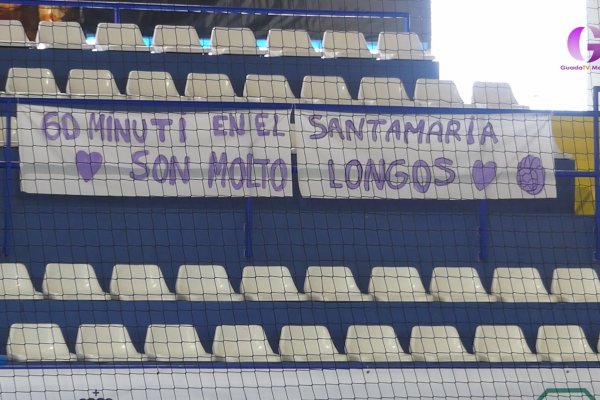 60 MINUTI EN EL SANTAMARIA
SON MOLTO LONGOS
G
GuadaTV Me